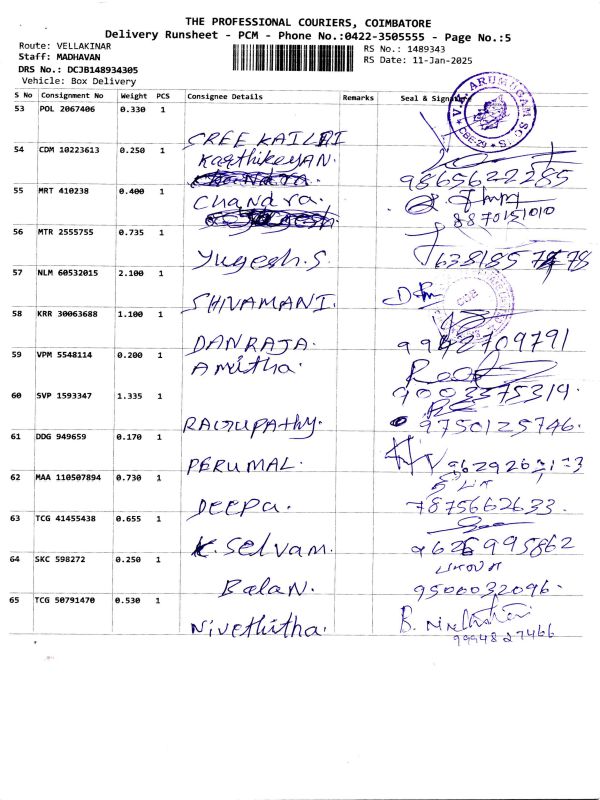 THE PROFESSIONAL COURIERS, COIMBATORE
Delivery Runsheet - PCM - Phone No.:0422-3505555 - Page No.:5
Route: VELLAKINAR
RS No.: 1489343
Staff: MADHAVAN
RS Date: 11-Jan-2025
DRS No.: DCJB148934305
Vehicle: Box Delivery
S No Consignment No Weight PCS Consignee Details Remarks Seal & Signature
53 POL 2067406 0.330 1
SREE KAILRI
54 CDM 10223613 0.250 1
Kaathikeyan.
9865622285
55 MRT 410238 0.400 1
Chandra.
8870151010
56 MTR 2555755 0.735 1
Yugesh.S.
57 NLM 60532015 2.100 1
SHIVAMANI.
58 KRR 30063688 1.100 1
DANRAJA.
9942709791
59 VPM 5548114 0.200 1
Amitha.
9003375319.
60 SVP 1593347 1.335 1
RAGUPATHY.
9750125746.
61 DDG 949659 0.170 1
PERUMAL.
62 MAA 110507894 0.730 1
DEEPA.
7875662633.
63 TCG 41455438 0.655 1
K. Selvam.
9626995862
64 SKC 598272 0.250 1
Balan.
9500032096.
65 TCG 50791470 0.530 1
Nivethitha.
9994827466